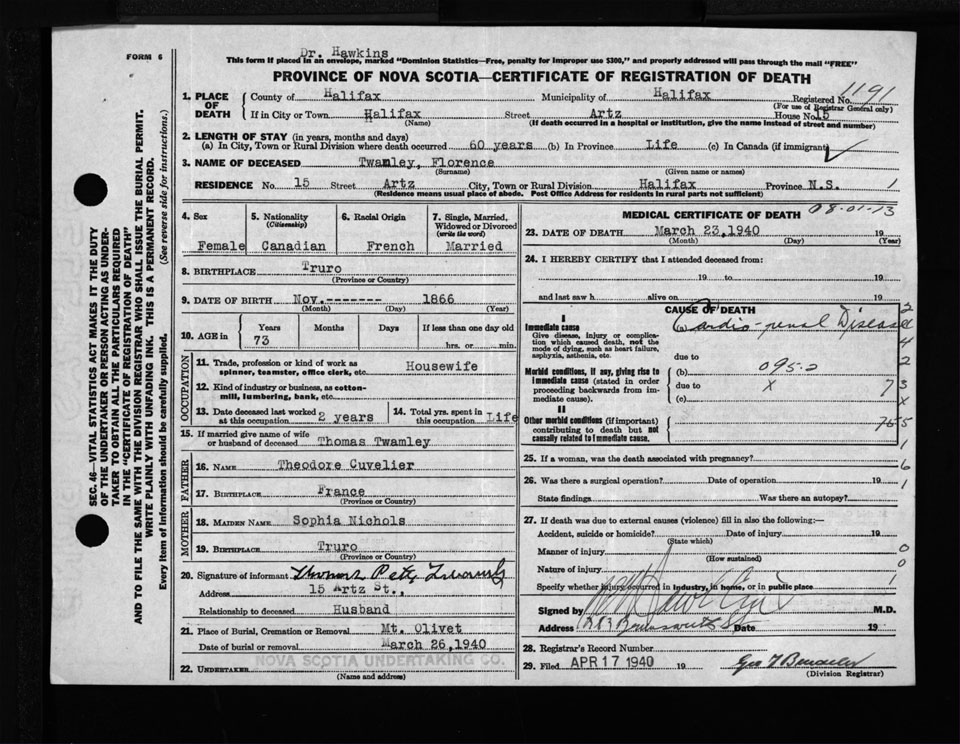 Dr. Hawkins
FORM 6
This form if placed in an envelope, marked "Dominion Statistics—Free, penalty for improper use $300," and properly addressed will pass through the mail "FREE"
PROVINCE OF NOVA SCOTIA—CERTIFICATE OF REGISTRATION OF DEATH
1. PLACE OF DEATH
County of Halifax Municipality of Halifax Registered No. 1191
(For use of Registrar General only)
If in City or Town Halifax Street Artz House No. 15
(Name) (If death occurred in a hospital or institution, give the name instead of street and number)
2. LENGTH OF STAY (in years, months and days)
(a) In City, Town or Rural Division where death occurred 60 years (b) In Province Life (c) In Canada (if immigrant)
3. NAME OF DECEASED Twamley, Florence
(Surname) (Given name or names)
RESIDENCE No. 15 Street Artz City, Town or Rural Division Halifax Province N.S. 1
(Residence means usual place of abode. Post Office Address for residents in rural parts not sufficient)
4. Sex
Female
5. Nationality
(Citizenship)
Canadian
6. Racial Origin
French
7. Single, Married, Widowed or Divorced
(write the word)
Married
8. BIRTHPLACE Truro
(Province or Country)
9. DATE OF BIRTH Nov. -------- 1866
(Month) (Day) (Year)
10. AGE in
Years Months Days If less than one day old
73 hrs. or min.
OCCUPATION
11. Trade, profession or kind of work as spinner, teamster, office clerk, etc. Housewife
12. Kind of industry or business, as cotton-mill, lumbering, bank, etc.
13. Date deceased last worked at this occupation 2 years
14. Total yrs. spent in this occupation Life
15. If married give name of wife or husband of deceased Thomas Twamley
FATHER
16. NAME Theodore Cuvelier
17. BIRTHPLACE France
(Province or Country)
MOTHER
18. MAIDEN NAME Sophia Nichols
19. BIRTHPLACE Truro
(Province or Country)
20. Signature of informant Thomas
Address 15 Artz St.,
Relationship to deceased Husband
21. Place of Burial, Cremation or Removal Mt. Olivet
Date of burial or removal March 26, 1940
22. UNDERTAKER NOVA SCOTIA UNDERTAKING CO.
(Name and address)
MEDICAL CERTIFICATE OF DEATH
08-01-13
23. DATE OF DEATH March 23, 1940 19
(Month) (Day) (Year)
24. I HEREBY CERTIFY that I attended deceased from:
19 to 19
and last saw h alive on 19
CAUSE OF DEATH
I
Immediate cause
Give disease, injury or complication which caused death, not the mode of dying, such as heart failure, asphyxia, asthenia, etc.
(a) Cardio-renal Disease
due to
Morbid conditions, if any, giving rise to immediate cause (stated in order proceeding backwards from immediate cause).
(b) 095-2
due to X
(c)
II
Other morbid conditions (if important) contributing to death but not causally related to immediate cause.
2
4
2
73
X
755
1
6
1
0
0
1
25. If a woman, was the death associated with pregnancy?
26. Was there a surgical operation? Date of operation 19
State findings Was there an autopsy?
27. If death was due to external causes (violence) fill in also the following:—
Accident, suicide or homicide? Date of injury 19
(State which)
Manner of injury
(How sustained)
Nature of injury
Specify whether injury occurred in industry, in home, or in public place
Signed by M.D.
Address Brunswick St Date 19
28. Registrar's Record Number
29. Filed APR 17 1940 19
(Division Registrar)
SEC. 46—VITAL STATISTICS ACT MAKES IT THE DUTY
OF THE UNDERTAKER OR PERSON ACTING AS UNDER-
TAKER TO OBTAIN ALL THE PARTICULARS REQUIRED
IN THE "CERTIFICATE OF REGISTRATION OF DEATH"
AND TO FILE THE SAME WITH THE DIVISION REGISTRAR WHO SHALL ISSUE THE BURIAL PERMIT.
WRITE PLAINLY WITH UNFADING INK. THIS IS A PERMANENT RECORD.
Every item of information should be carefully supplied. (See reverse side for instructions.)